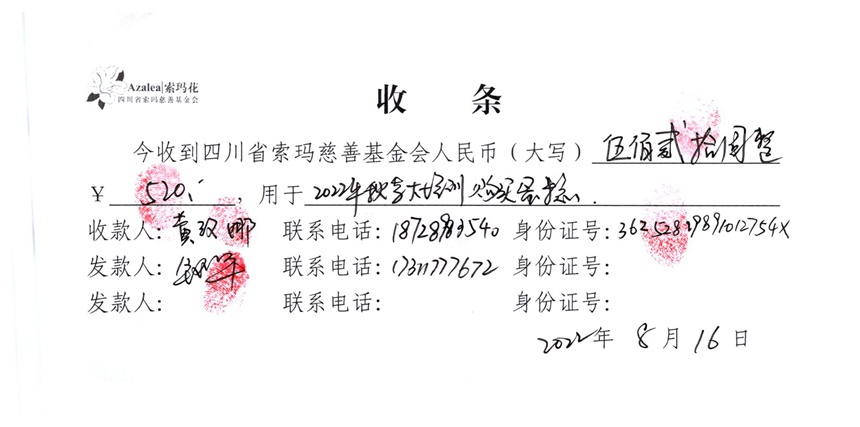 Azalea|索玛花
四川省索玛慈善基金会
收 条
今收到四川省索玛慈善基金会人民币（大写）伍佰贰拾圆整
￥520.-，用于2022年秋季大培训购买蛋糕.
收款人：黄玫 联系电话： 身份证号：
发款人： 联系电话：17311777672 身份证号：
发款人： 联系电话： 身份证号：
2022年8月16日